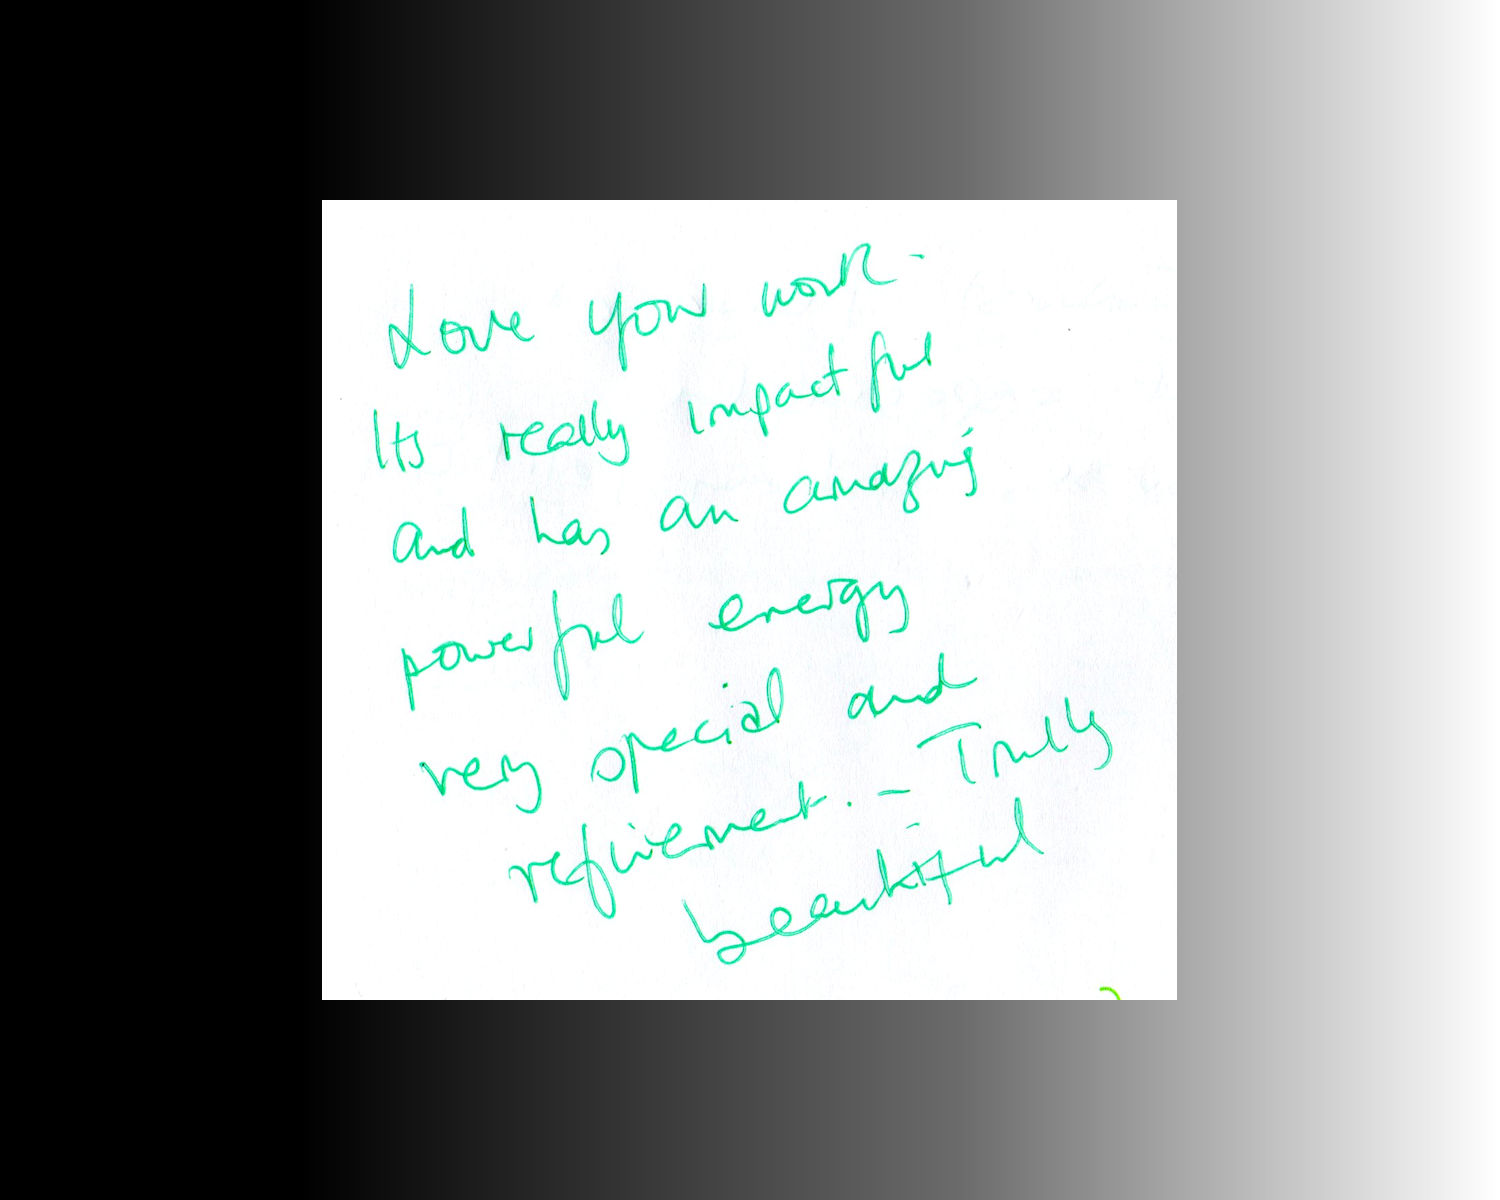 Love your work -
Its really impactful
and has an amazing
powerful energy
very special and
refinement. - Truly
beautiful